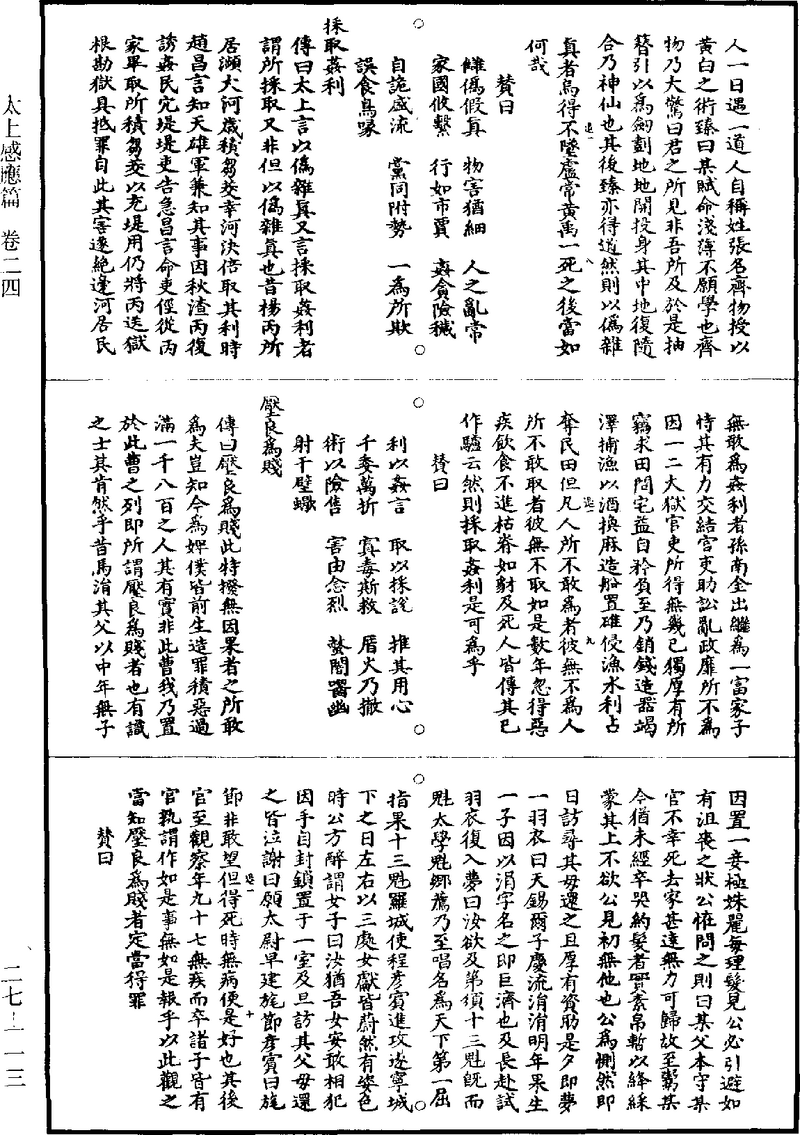 太上感應篇　卷二四
二七—一一三
人一日遇一道人自稱姓張名齊物授以
黃白之術臻曰某賦命淺薄不願學也齊
物乃大驚曰君之所見非吾所及於是抽
簪引以為劒劃地地開投身其中地復隨
合乃神仙也其後臻亦得道然則以偽雜
真者烏得不墜盧常黃禹一死之後當如
何哉
贊曰
雠偽假真　物害猶細　人之亂常
家國攸繫　行如市賈　姦貪險穢
自詭盛流　黨同附勢　一為所欺
誤食鳥喙
採取姦利
傳曰太上言以偽雜真又言採取姦利者
謂所採取又非但以偽雜真也昔楊丙所
居瀕大河歲積芻茭幸河決倍取其利時
趙昌言知天雄軍兼知其事因秋潦丙復
誘姦民穴堤堤吏告急昌言命吏徑從丙
家畢取所積芻茭以充堤用仍將丙送獄
根勘獄具抵罪自此其害遂絕邊河居民
無敢為姦利者孫南金出繼為一富家子
恃其有力交結官吏助訟亂政靡所不為
因一二大獄官吏所得無幾已獨厚有所
竊求田問宅益自矜負至乃銷錢造器竭
澤捕漁以酒換麻造船置碓侵漁水利占
奪民田但凡人所不敢為者彼無不為人
所不敢取者彼無不取如是數年忽得惡
疾飲食不進枯脊如豺及死人皆傳其已
作驢云然則採取姦利是可為乎
贊曰
利以姦言　取以採說　推其用心
千委萬折　寘毒斯救　厝火乃撤
術以險售　害由忿烈　螯闇噆幽
射干壁蠍
壓良為賤
傳曰壓良為賤此特撥無因果者之所敢
為夫豈知今為婢僕皆前生造罪積惡過
滿一千八百之人其有實非此曹我乃置
於此曹之列即所謂壓良為賤者也有識
之士其肯然乎昔馬涓其父以中年無子
因置一妾極姝麗每理髮見公必引避如
有沮喪之狀公恠問之則曰某父本守某
官不幸死去家甚遠無力可歸故至鬻某
今猶未經卒哭約髮者實素帛暫以絳綵
蒙其上不欲公見初無他也公為惻然即
日訪尋其母還之且厚有資助是夕即夢
一羽衣曰天錫爾子慶流涓涓明年果生
一子因以涓字名之即巨濟也及長赴試
羽衣復入夢曰汝欲及第須十三魁既而
魁太學魁鄉薦乃至唱名為天下第一屈
指果十三魁羅城使程彥賓進攻遂寧城
下之日左右以三處女獻皆蔚然有姿色
時公方醉謂女子曰汝猶吾女安敢相犯
因手自封鎖置于一室及旦訪其父母還
之皆泣謝曰願太尉早建旄節彥賓曰旄
節非敢望但得死時無病便是好也其後
官至觀察年九十七無疾而卒諸子皆有
官孰謂作如是事無如是報乎以此觀之
當知壓良為賤者定當得罪
贊曰